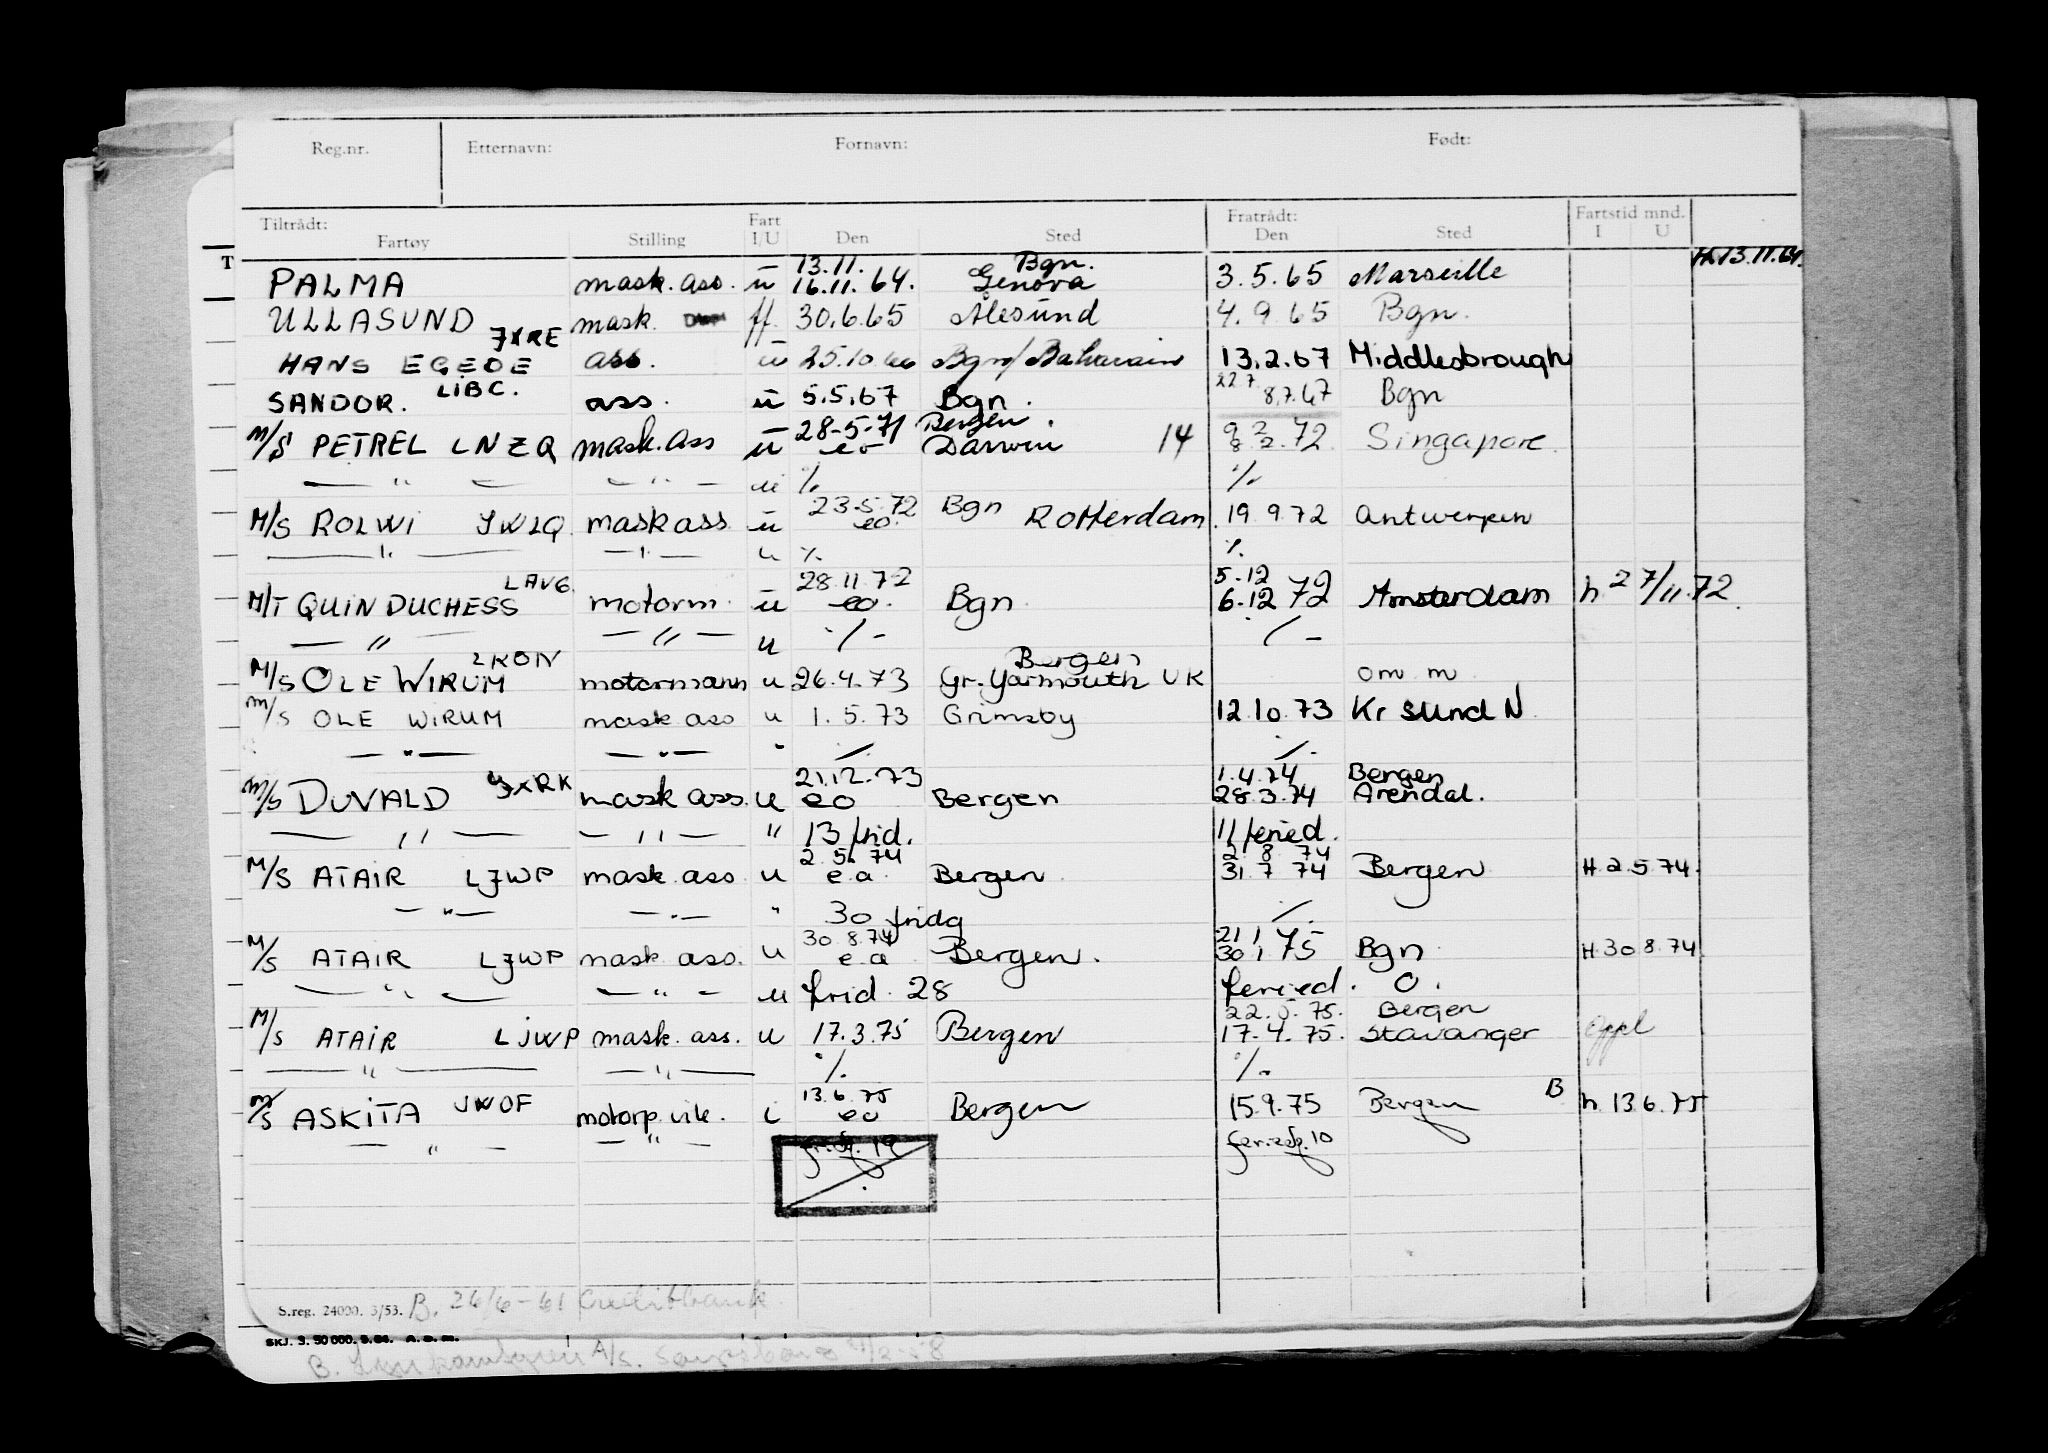 Reg.nr. Etternavn: Fornavn: Født:
Tiltrådt: Fart Fratrådt: Fartstid mnd.
Fartøy Stilling I/U Den Sted Den Sted I U
H. 13.11.64.
13.11. Bgn.
PALMA mask. ass. u 16.11.64. Genova 3.5.65 Marseille
ULLASUND mask. ff. 30.6.65 Ålesund 4.9.65 Bgn.
JXRE
HANS EGEDE ass. u 25.10.66 Bgn/Baharain 13.2.67 Middlesbrough
LIBC. 22 7
SANDOR. ass. u 5.5.67 Bgn. 8.7.67 Bgn
28-5-71 Bergen. 9 2
M/S PETREL LNZQ mask. ass u eo Darwin 14 8.2.72 Singapore.
— " — — " — u % %
23-5-72 Bgn
M/S ROLWI JWLQ mask ass u eo. Rotterdam 19 9.72 Antwerpen
— " — — " — u % %
LAVG. 28.11.72 5.12
M/T QUIN DUCHESS motorm. u eo. Bgn 6.12 72 Amsterdam h 27/11.72.
— " — — " — u ./- ./-
LKON Bergen
M/S OLE WIRUM motormann u 26.4.73 Gr. Yarmouth UK om m
M/S OLE WIRUM mask ass u 1.5.73 Grimsby 12.10.73 Kr sund N
— " — — " — " ./. ./.
JXRK 21.12.73 1.4.74 Bergen
M/S DUVALD mask ass. u eo Bergen 28.3.74 Arendal.
— " — — " — " 13 frid. 11 feried.
2.5.74 2.8.74
M/S ATAIR LJWP mask. ass u e.a. Bergen 31.7 74 Bergen H.2.5.74.
— " — — " — " 30 fridg ./.
30.8.74 21 1
M/S ATAIR LJWP mask. ass. u e.a Bergen. 30 1 75 Bgn H.30 8.74
— " — — " — u frid. 28 feried. 0.
22.5.75. Bergen
M/S ATAIR LJWP mask. ass. u 17.3.75 Bergen 17.4.75. Stavanger Oppl
— " — — " — % %
13.6.75
M/S ASKITA JWOF motorp. vik. i eo Bergen 15.9.75 Bergen B h. 13.6.75
— " — — " — fr.dg. 19 fer.edg. 10
S.reg. 24000. 3/53. B. 26/6-61 Creditbank
SKJ. 3. 50 000.
B. A/S. Sarpsborg